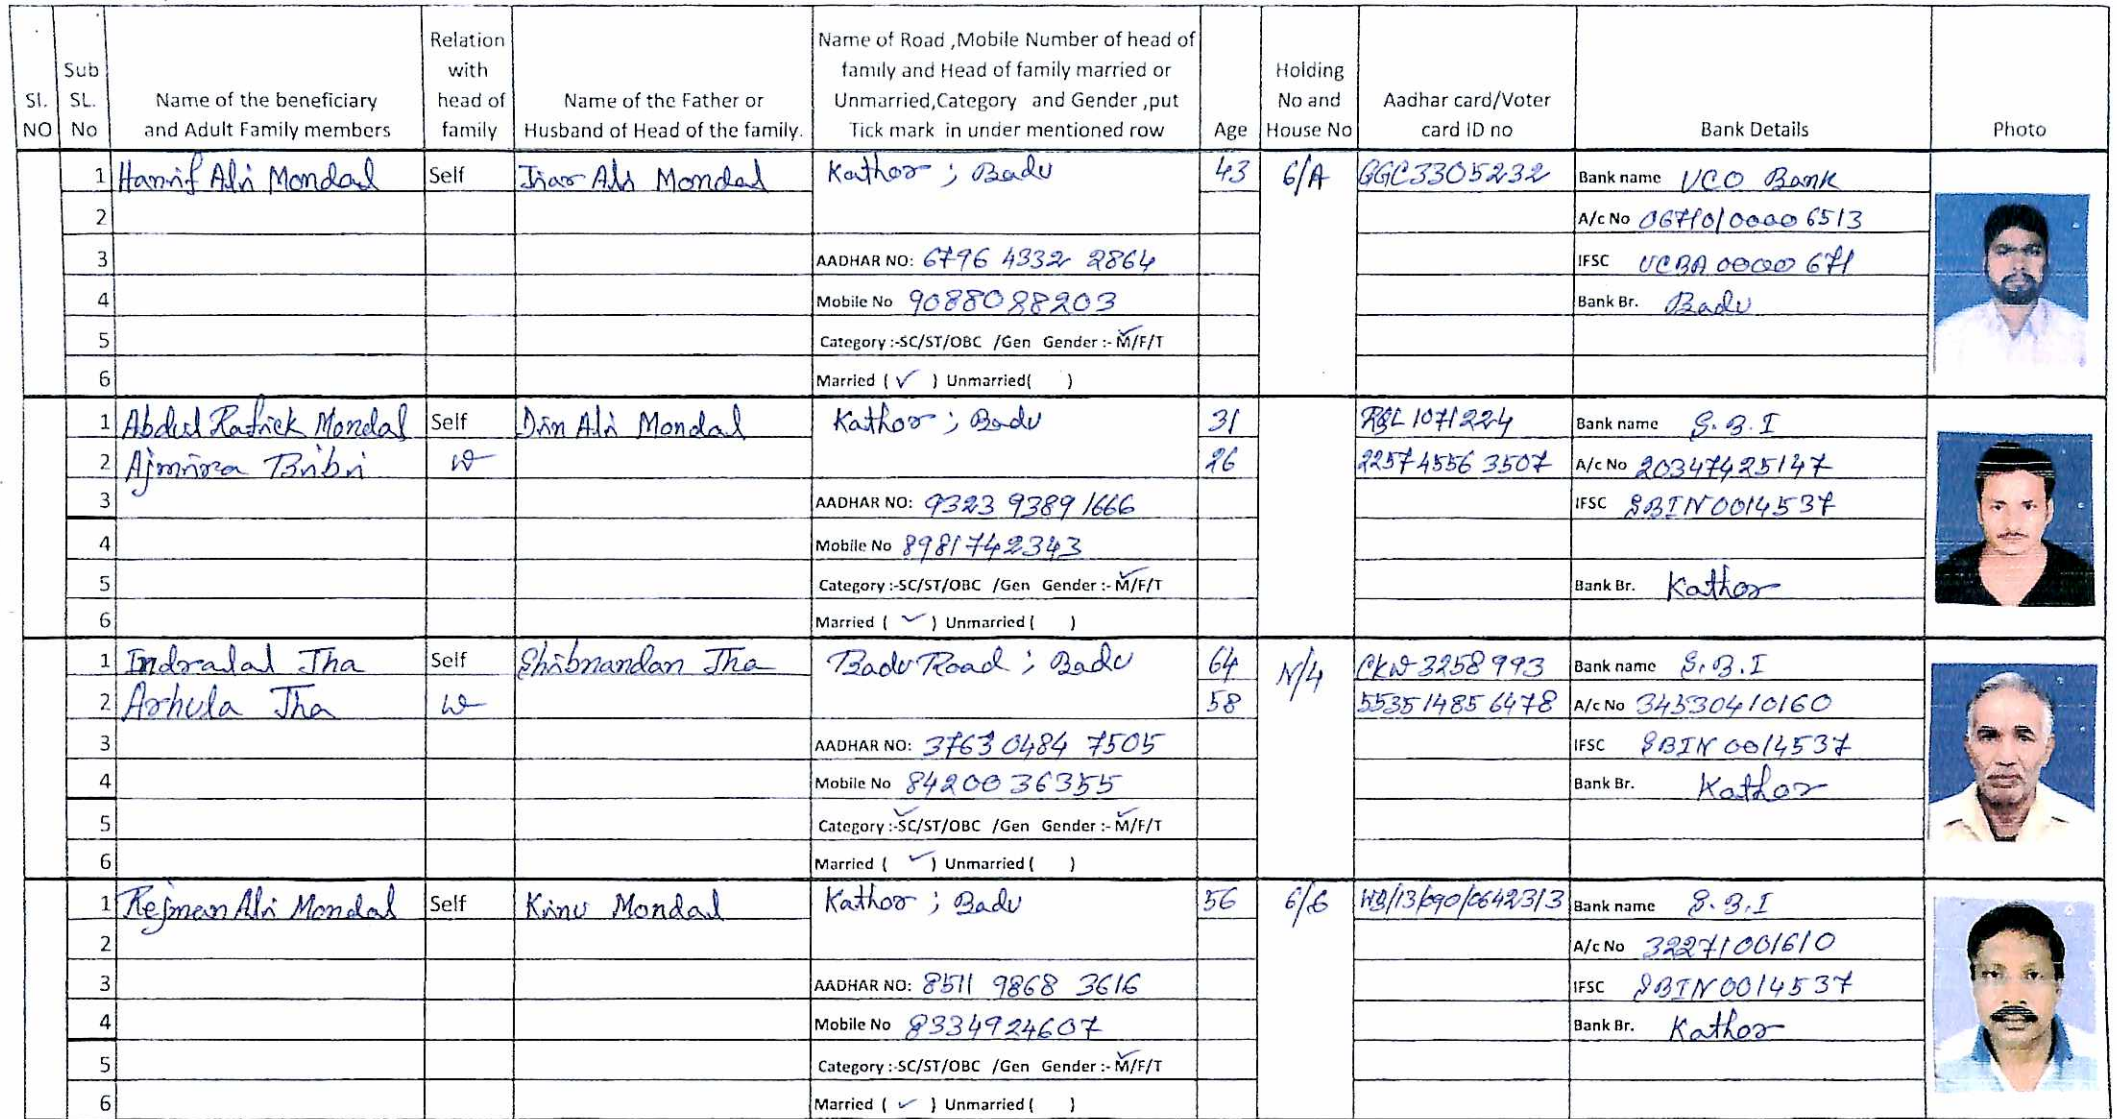 Sl. NO | Sub SL. No | Name of the beneficiary and Adult Family members | Relation with head of family | Name of the Father or Husband of Head of the family. | Name of Road ,Mobile Number of head of family and Head of family married or Unmarried,Category and Gender ,put Tick mark in under mentioned row | Age | Holding No and House No | Aadhar card/Voter card ID no | Bank Details | Photo
1 Hanif Ali Mondal Self Ali Mondal Kathor ; Badu 43 6/A GGC3305232 Bank name UCO Bank
2 A/c No 06710100006513
3 AADHAR NO: 6796 4332 2864 IFSC UCBA 0000671
4 Mobile No 9088088203 Bank Br. Badu
5 Category :-SC/ST/OBC /Gen Gender :- M/F/T
6 Married ( ✓ ) Unmarried( )
1 Abdul Rafick Mondal Self Din Ali Mondal Kathor ; Badu 31 1071224 Bank name S.B.I
2 Ajmira Bibi W 26 2257 4556 3507 A/c No 20347425147
3 AADHAR NO: 9323 9389 1666 IFSC SBIN0014537
4 Mobile No 8981742343
5 Category :-SC/ST/OBC /Gen Gender :- M/F/T Bank Br. Kathor
6 Married ( ✓ ) Unmarried ( )
1 Indralal Jha Self Shibnandan Jha Badu Road ; Badu 64 N/4 CKW3258993 Bank name S.B.I
2 Arhula Jha W 58 5535 1485 6478 A/c No 34530410160
3 AADHAR NO: 3763 0484 7505 IFSC SBIN0014537
4 Mobile No 8420036355 Bank Br. Kathor
5 Category :-SC/ST/OBC /Gen Gender :- M/F/T
6 Married ( ✓ ) Unmarried ( )
1 Rejman Ali Mondal Self Kinu Mondal Kathor ; Badu 56 6/6 WB/13/090/0642313 Bank name S.B.I
2 A/c No 32271001610
3 AADHAR NO: 8511 9868 3616 IFSC SBIN0014537
4 Mobile No 8334924607 Bank Br. Kathor
5 Category :-SC/ST/OBC /Gen Gender :- M/F/T
6 Married ( ✓ ) Unmarried ( )